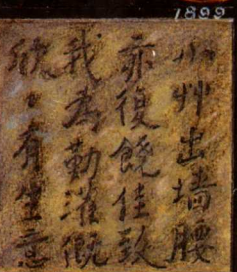 1899
小艸出墙腰
亦復饒佳致
我為勤灌溉
欣〻有生意